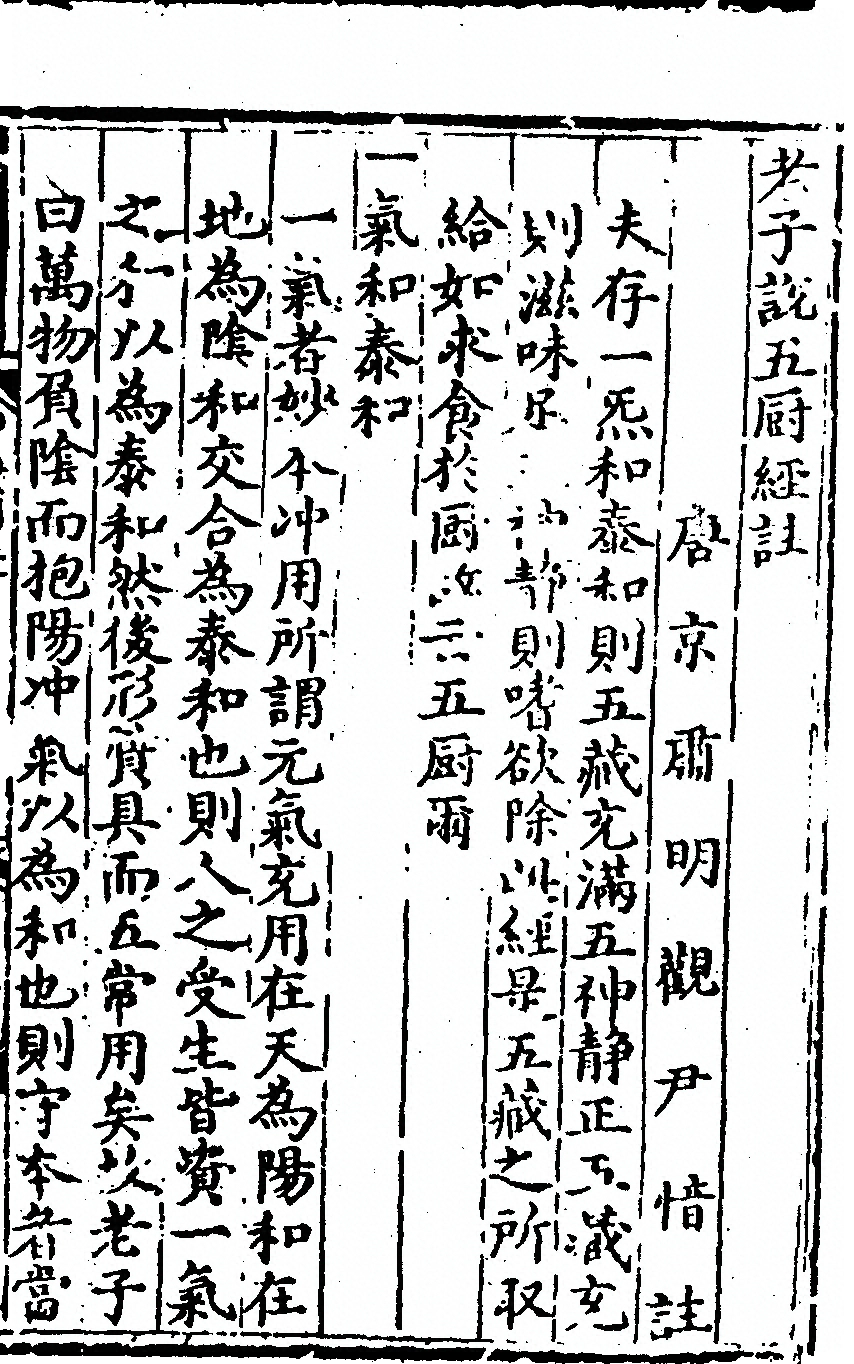 老子說五厨經註
唐京肅明觀尹愔註
夫存一炁和泰和則五藏充滿五神静正五藏充
則滋味足五神静則嗜欲除此經是五藏之所取
給如求食於厨故云五厨爾
一氣和泰和
一氣者妙本冲用所謂元氣充用在天為陽和在
地為陰和交合為泰和也則人之受生皆資一氣
之和以為泰和然後形質具而五常用矣故老子
曰萬物負陰而抱陽冲氣以為和也則守本者當